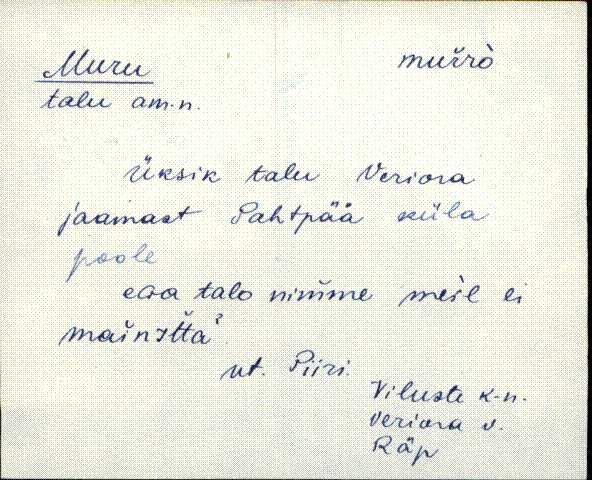 Muru murrò
talu am.n.
Üksik talu Veriora
jaamast Pahtpää küla
poole
talo nimme meil ei
vt. Piiri.
Viluste k-n.
Veriora v.
Räp